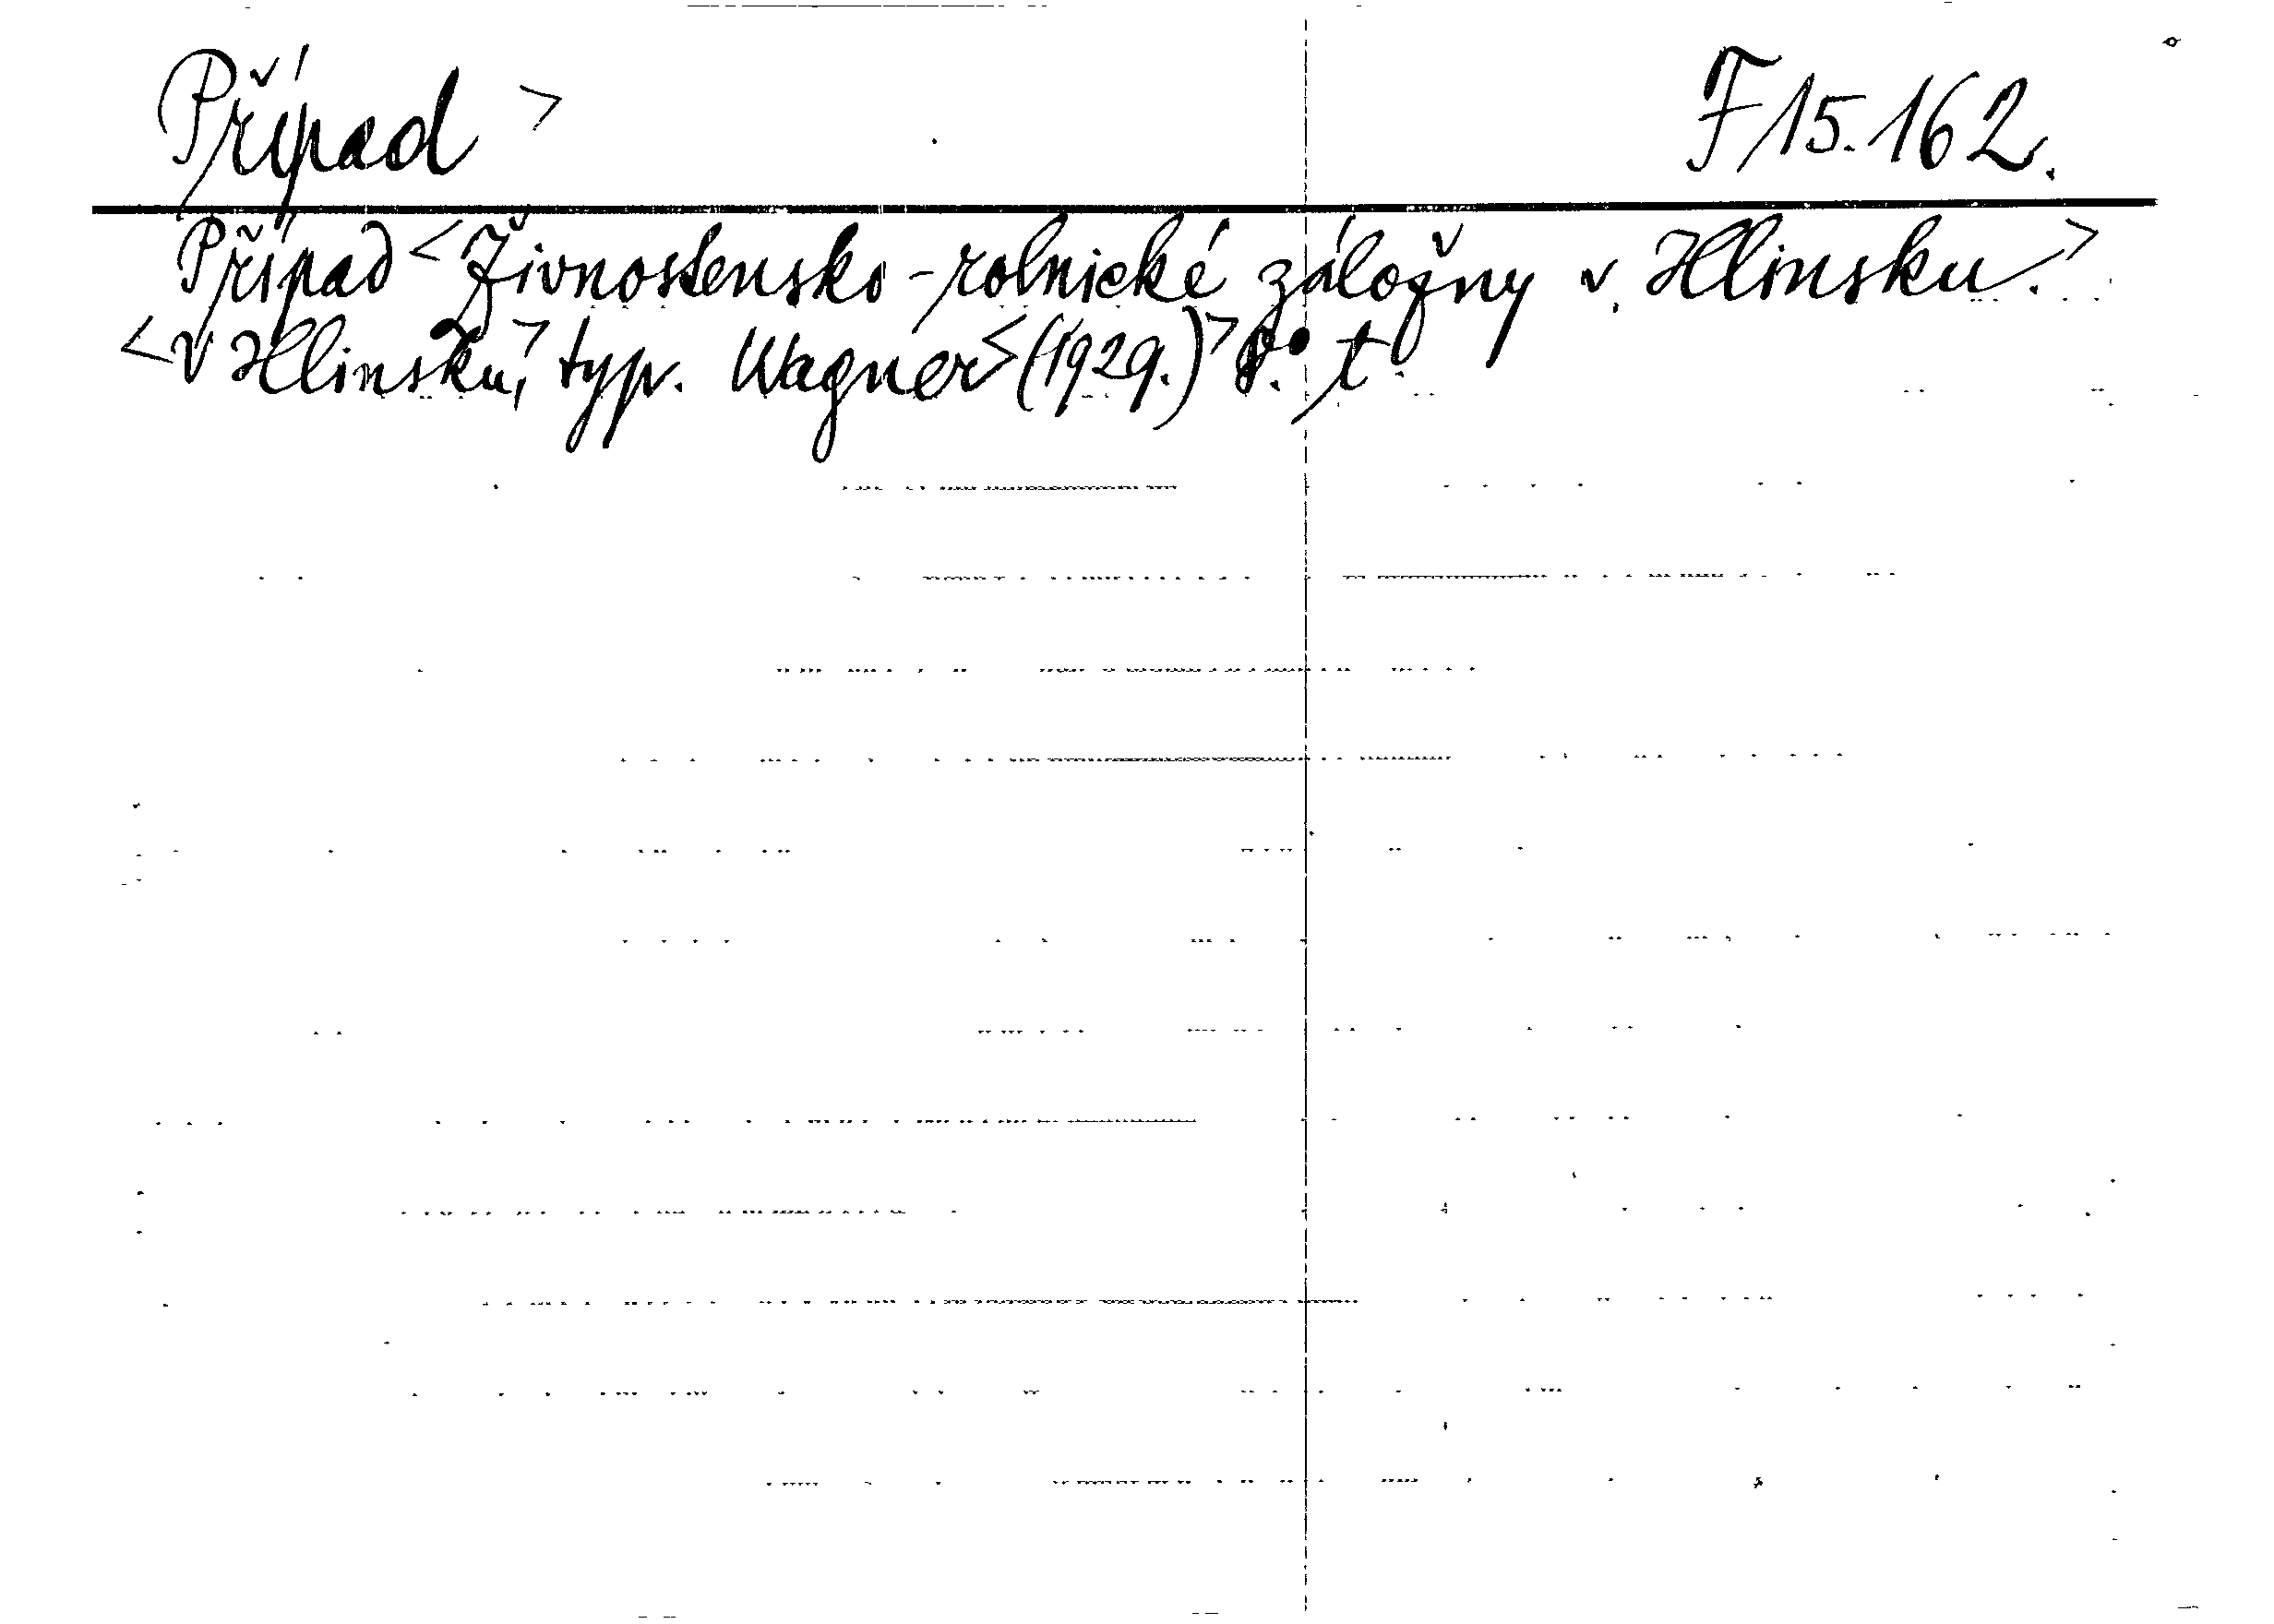 Případ > F 15.162.
Případ < Živnostensko-rolnické záložny v Hlinsku. >
< V Hlinsku, > typ. Wagner < (1929.) > 8° t.